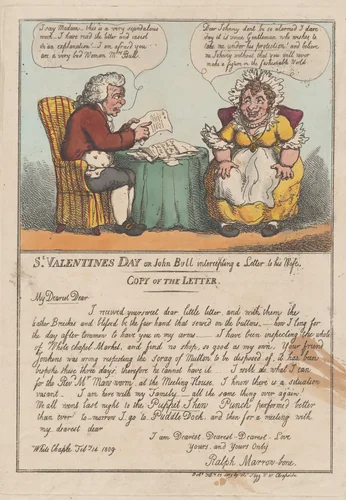 I say Madam, this is a very scandalous
work. I have read the letter and insist
on an explanation. I am afraid you
are a very bad Woman Mrs Bull
Dear Johnny dont be so alarmed I dare
say it is some Gentleman who wishes to
take me under his protection! and believe
me Johnny without that you will never
make a figure in the fashionable World.
St. VALENTINES DAY or John Bull intercepting a Letter to his Wife.
COPY OF THE LETTER.
My Dearest Dear
I received your sweet dear little letter and with them the
Leather Breeches and blessed the fair hand that sewed on the buttons, how I long for
the day after tomorrow to have you in my arms I have been inspecting the whole
of White chapel Market, and find no shop, so good as my own. Your friend
Jenkens was wrong respecting the scrap of Mutton to be disposed of. it has been
bespoke these three days. therefore he cannot have it. I will do what I can
for the Revd Mr Maw worm, at the Meeting House. I know there is a situation
vacant. I am here with my Family all the same thing over again
We all went last night to the Puppet Shew Punch performed better
than ever to-morrow I go to Puddle Dock. and then for a meeting with
my dearest dear
I am Dearest Dearest Dearest Love
Yours, and Yours Only
Ralph Marrow-bone.
White Chaple Feby 14 1809
by Thos Tegg No 111 Cheapside